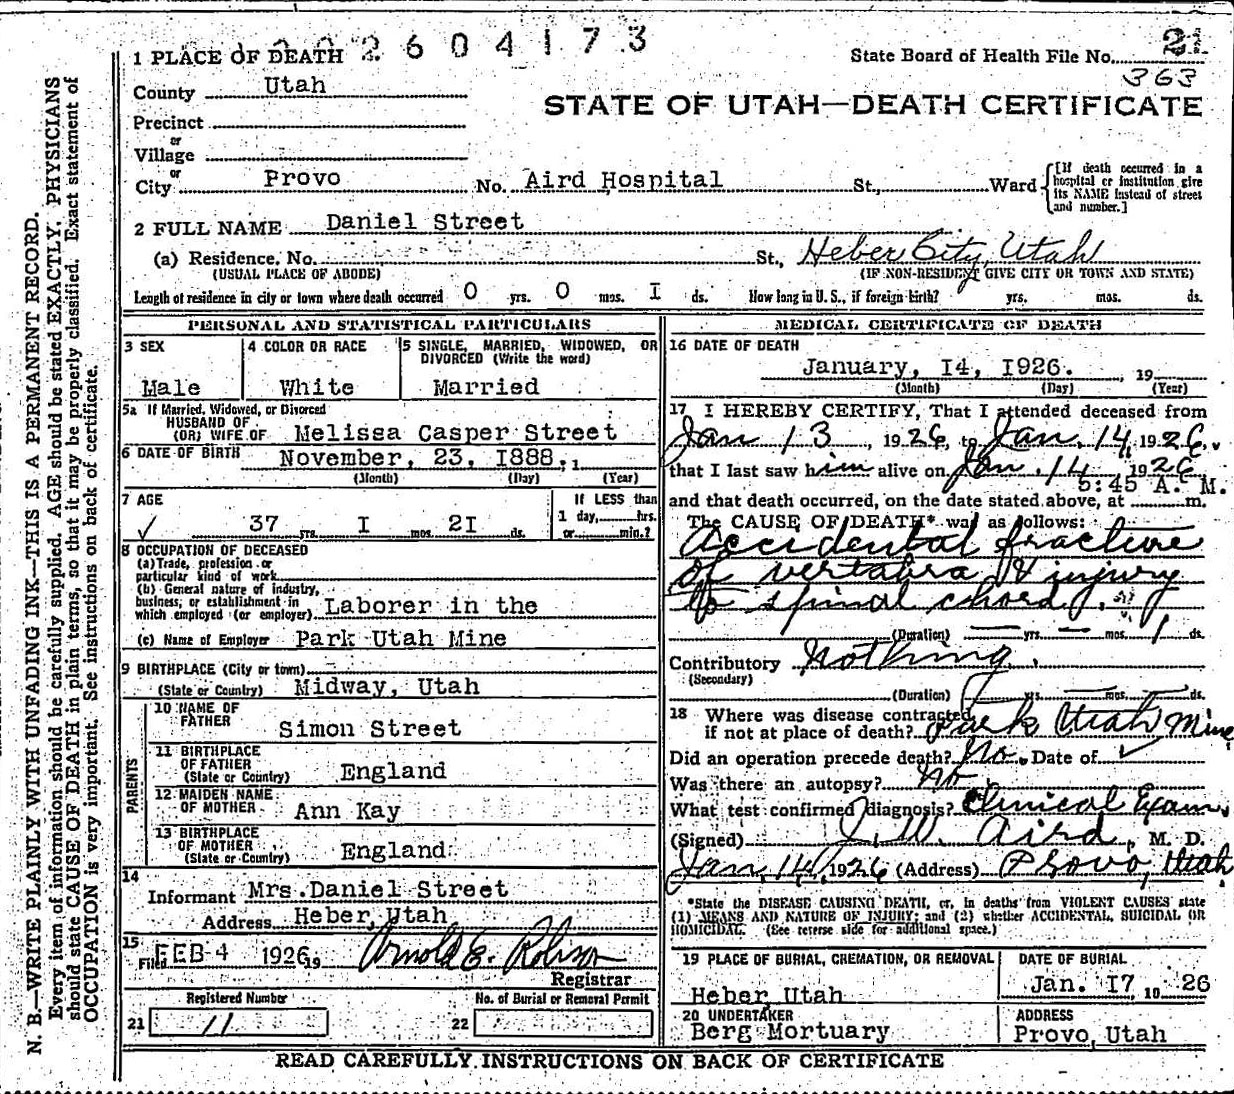 2604173
1 PLACE OF DEATH
State Board of Health File No. 21
363
County Utah
STATE OF UTAH—DEATH CERTIFICATE
Precinct
or
Village
or
City Provo No. Aird Hospital St., Ward
[If death occurred in a
hospital or institution give
its NAME instead of street
and number.]
2 FULL NAME Daniel Street
(a) Residence. No. St., Heber City, Utah
(USUAL PLACE OF ABODE) (IF NON-RESIDENT GIVE CITY OR TOWN AND STATE)
Length of residence in city or town where death occurred 0 yrs. 0 mos. I ds. How long in U. S., if foreign birth? yrs. mos. ds.
PERSONAL AND STATISTICAL PARTICULARS
3 SEX
Male
4 COLOR OR RACE
White
5 SINGLE, MARRIED, WIDOWED, OR
DIVORCED (Write the word)
Married
5a If Married, Widowed, or Divorced
HUSBAND OF
(OR) WIFE OF Melissa Casper Street
6 DATE OF BIRTH November, 23, I888, 1
(Month) (Day) (Year)
7 AGE
37 yrs. I mos. 2I ds.
If LESS than
1 day, hrs.
or min.?
8 OCCUPATION OF DECEASED
(a) Trade, profession or
particular kind of work
(b) General nature of industry,
business, or establishment in
which employed (or employer) Laborer in the
(c) Name of Employer Park Utah Mine
9 BIRTHPLACE (City or town)
(State or Country) Midway, Utah
PARENTS
10 NAME OF
FATHER
Simon Street
11 BIRTHPLACE
OF FATHER
(State or Country) England
12 MAIDEN NAME
OF MOTHER Ann Kay
13 BIRTHPLACE
OF MOTHER
(State or Country) England
14
Informant Mrs. Daniel Street
Address Heber, Utah
15
Filed FEB -4 1926, 19 Arnold E. Robison
Registrar
Registered Number
21 11
No. of Burial or Removal Permit
22
MEDICAL CERTIFICATE OF DEATH
16 DATE OF DEATH
January, I4, I926. , 19
(Month) (Day) (Year)
17 I HEREBY CERTIFY, That I attended deceased from
Jan 13, 1926, to Jan. 14, 1926.
that I last saw him alive on Jan. 14, 1926
5:45 A. M.
and that death occurred, on the date stated above, at m.
The CAUSE OF DEATH* was as follows:
Accidental fracture
of vertabra & injury
to spinal chord.
(Duration) — yrs. — mos. 1 ds.
Contributory Nothing.
(Secondary)
(Duration) yrs. mos. ds.
18 Where was disease contracted
if not at place of death? Park Utah Mine
Did an operation precede death? No. Date of ✓
Was there an autopsy? No
What test confirmed diagnosis? Clinical Exam.
(Signed) J. W. Aird, M. D.
Jan. 14, 1926 (Address) Provo, Utah
*State the DISEASE CAUSING DEATH, or, in deaths from VIOLENT CAUSES state
(1) MEANS AND NATURE OF INJURY; and (2) whether ACCIDENTAL, SUICIDAL OR
HOMICIDAL. (See reverse side for additional space.)
19 PLACE OF BURIAL, CREMATION, OR REMOVAL
Heber, Utah
DATE OF BURIAL
Jan. I7, 19 26
20 UNDERTAKER
Berg Mortuary
ADDRESS
Provo, Utah
READ CAREFULLY INSTRUCTIONS ON BACK OF CERTIFICATE
N. B.—WRITE PLAINLY WITH UNFADING INK—THIS IS A PERMANENT RECORD.
Every item of information should be carefully supplied. AGE should be stated EXACTLY. PHYSICIANS
should state CAUSE OF DEATH in plain terms, so that it may be properly classified. Exact statement of
OCCUPATION is very important. See instructions on back of certificate.